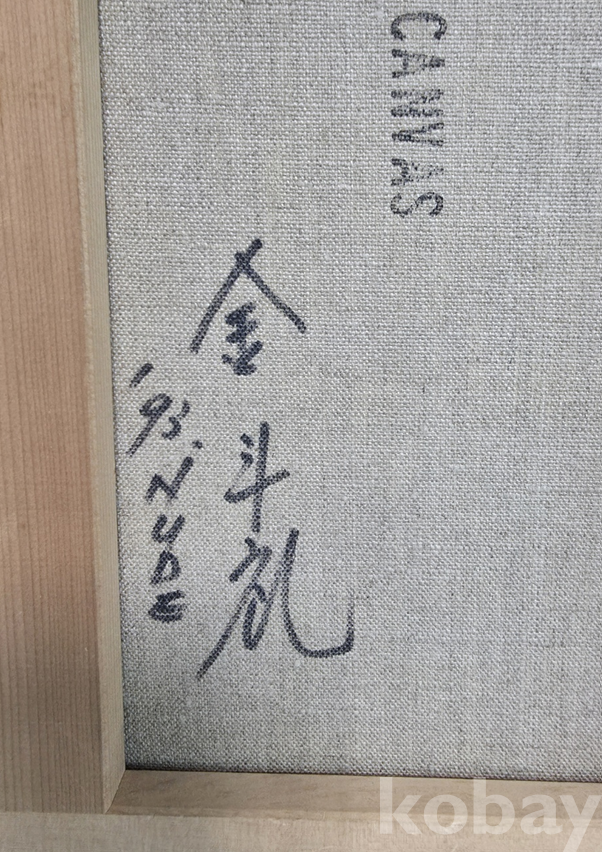 CANVAS
金斗礼
'95. NUDE
kobay